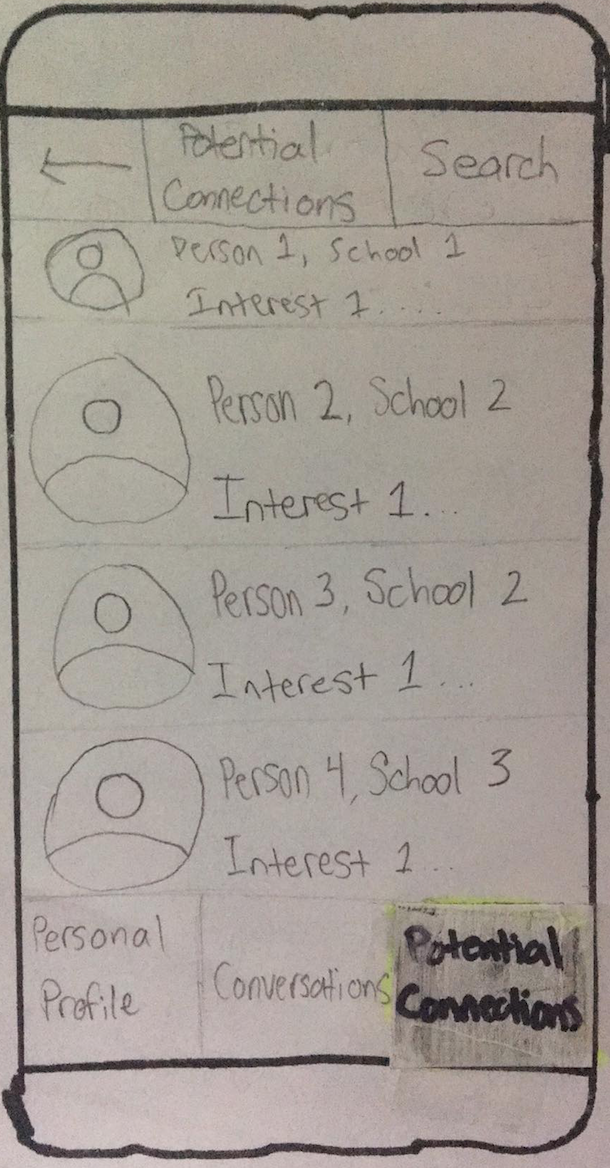 Potential
Connections
Search
Person 1, School 1
Interest 1.....
Person 2, School 2
Interest 1...
Person 3, School 2
Interest 1...
Person 4, School 3
Interest 1...
Personal
Profile
Conversations
Potential
Connections